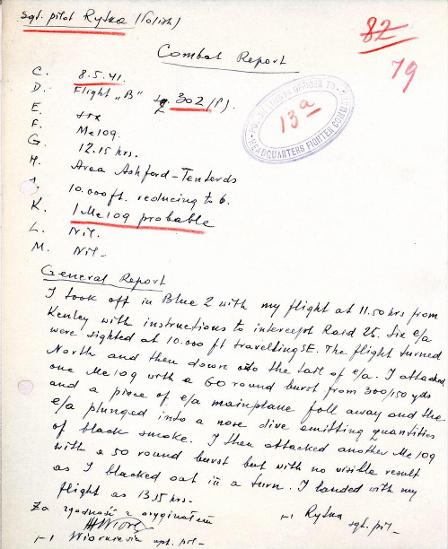 sgt. pilot Rytka (Polish)
82
79
Combat Report
C. 8.5.41.
D. Flight "B" sq. 302 (P).
E.
F. Me109.
G. 12.15 hrs.
H. Area Ashford - Tenterds
10.000 ft. reducing to 6.
K. 1 Me109 probable
L. Nil.
M. Nil.
13a
HEADQUARTERS FIGHTER COMMAND
General Report
I took off in Blue 2 with my flight at 11.50 hrs from
Kenley with instructions to intercept Raid 25. Six e/a
were sighted at 10.000 ft travelling SE. The flight turned
North and then down onto the tail of e/a. I attacked
one Me109 with a 60 round burst from 300/150 yds
and a piece of e/a mainplane fell away and the
e/a plunged into a nose dive emitting quantities
of black smoke. I then attacked another Me109
with a 50 round burst but with no visible result
as I blacked out in a turn. I landed with my
flight as 13.15 hrs.
Za zgodność z oryginałem
Rytka
sgt. pil.